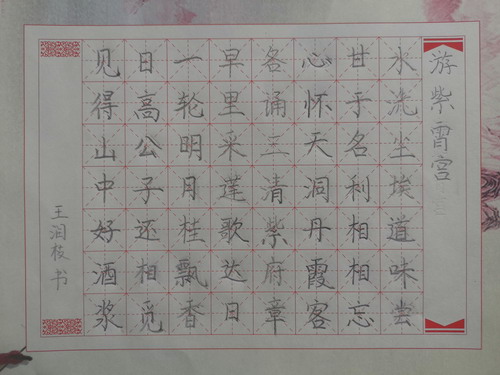 游紫霄宫
水洗尘埃道味尝
甘于名利相相忘
心怀天洞丹霞客
各诵三清紫府章
早里采莲歌达日
一轮明月桂飘香
日高公子还相觅
见得山中好酒浆
王泪板书